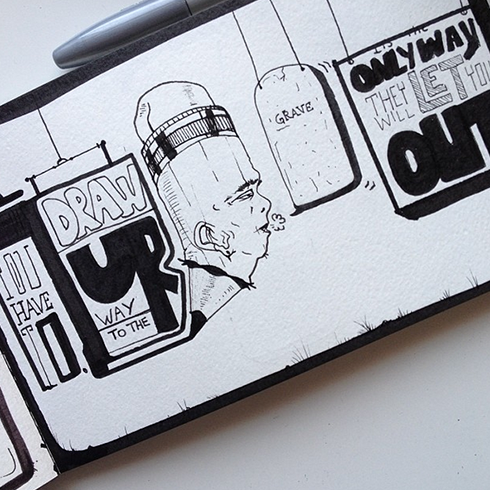 HAVE
TO.
DRAW
UR
WAY
TO THE
GRAVE
IS THE
ONLY WAY
THEY
WILL
LET YOU
OUT